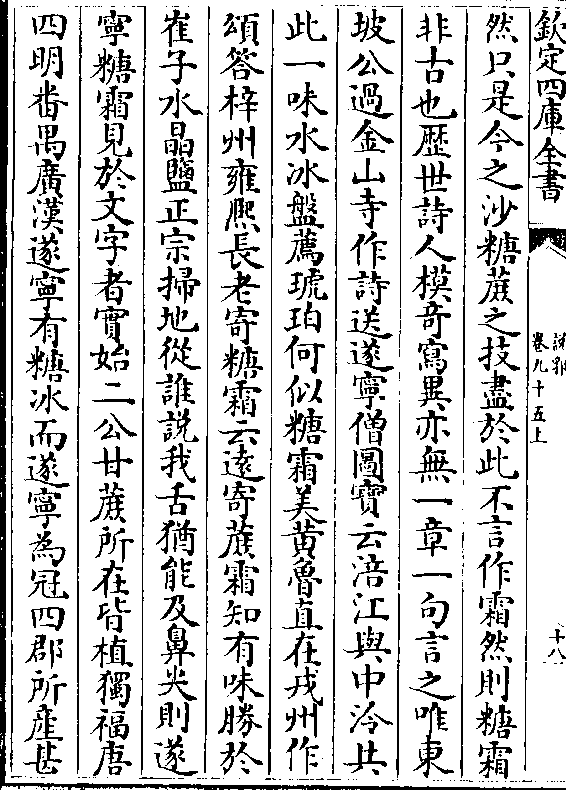 欽定四庫全書
說郛
卷九十五上
十八
然只是今之沙糖蔗之技盡於此不言作霜然則糖霜
非古也歷世詩人模奇寫異亦無一章一句言之唯東
坡公過金山寺作詩送遂寧僧圓寶云涪江與中泠共
此一味水冰盤薦琥珀何似糖霜美黄魯直在戎州作
頌答梓州雍熈長老寄糖霜云逺寄蔗霜知有味勝於
崔子水晶鹽正宗掃地從誰說我舌猶能及鼻尖則遂
寧糖霜見於文字者實始二公甘蔗所在皆植獨福唐
四明番禺廣漢遂寧有糖冰而遂寧為冠四郡所産甚